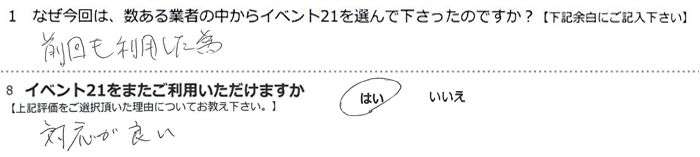 1 なぜ今回は、数ある業者の中からイベント21を選んで下さったのですか？【下記余白にご記入下さい】
前回も利用した為
8 イベント21をまたご利用いただけますか はい いいえ
【上記評価をご選択頂いた理由についてお教え下さい。】
対応が良い